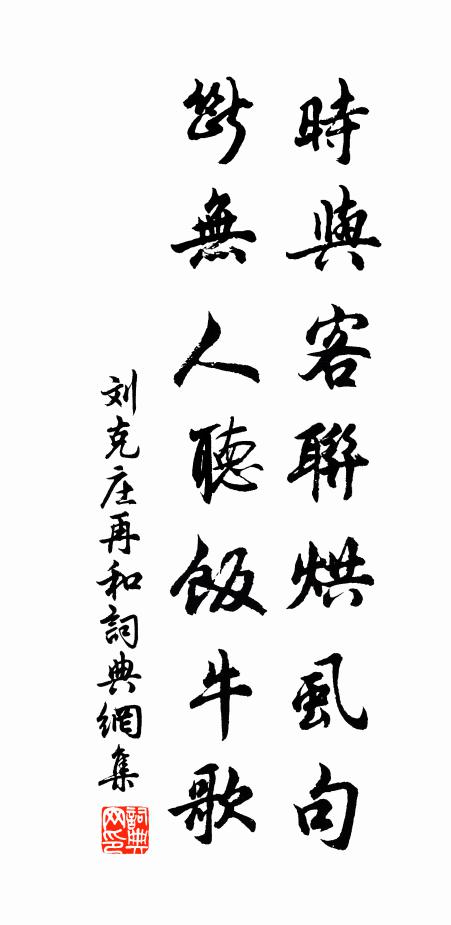 時與客聯烘虱句
斷無人聽飯牛歌
刘克庄再和詞典網集
詞典網印